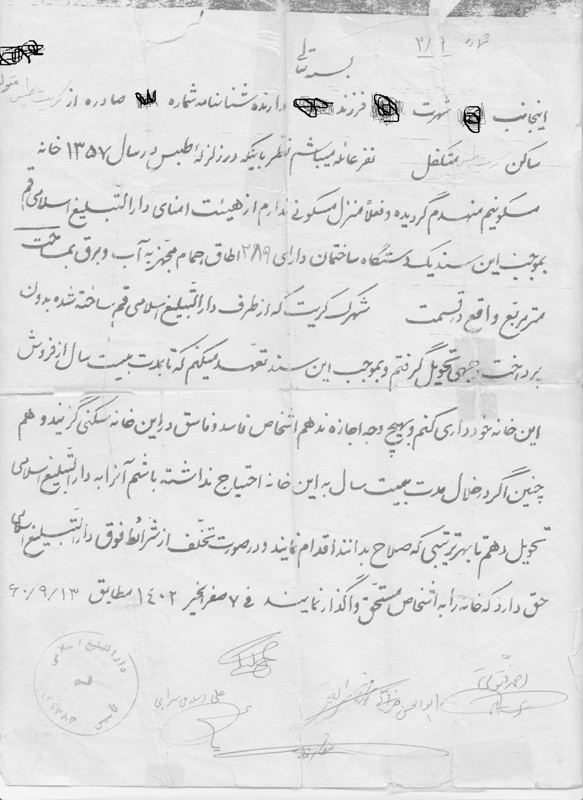 شهر ۳/۱
بسمه تعالی
اینجانب شهرت فرزند دارنده شناسنامه شماره صادره از
ساکن متکفل نفر عائله میباشم نظر باینکه در زلزله طبس در سال ۱۳۵۷ خانه
مسکونیم منهدم گردیده و فعلاً منزل مسکونی ندارم از هیئت امنای دارالتبلیغ اسلامی قم
بموجب این سند یک دستگاه ساختمان دارای اطاق حمام مجهز به آب و برق بمساحت
متر مربع واقع در قسمت شهرک کریت که از طرف دارالتبلیغ اسلامی قم ساخته شده بدون
پرداخت وجهی تحویل گرفتم و بموجب این سند تعهد میکنم که تا مدت بیست سال از فروش
این خانه خودداری کنم و بهیچ وجه اجازه ندهم اشخاص فاسد و فاسق در این خانه سکنی گزینند و هم
چنین اگر در خلال مدت بیست سال به این خانه احتیاج نداشته باشم آنرا به دارالتبلیغ اسلامی
تحویل دهم تا بهر ترتیبی که صلاح بدانند اقدام نمایند و در صورت تخلف از شرائط فوق دارالتبلیغ اسلامی
حق دارد که خانه را به اشخاص مستحق واگذار نمایند فی ۷ صفر الخیر ۱۴۰۲ مطابق ۶۰/۹/۱۳
دارالتبلیغ اسلامی
قم
علی
ابوالحسن